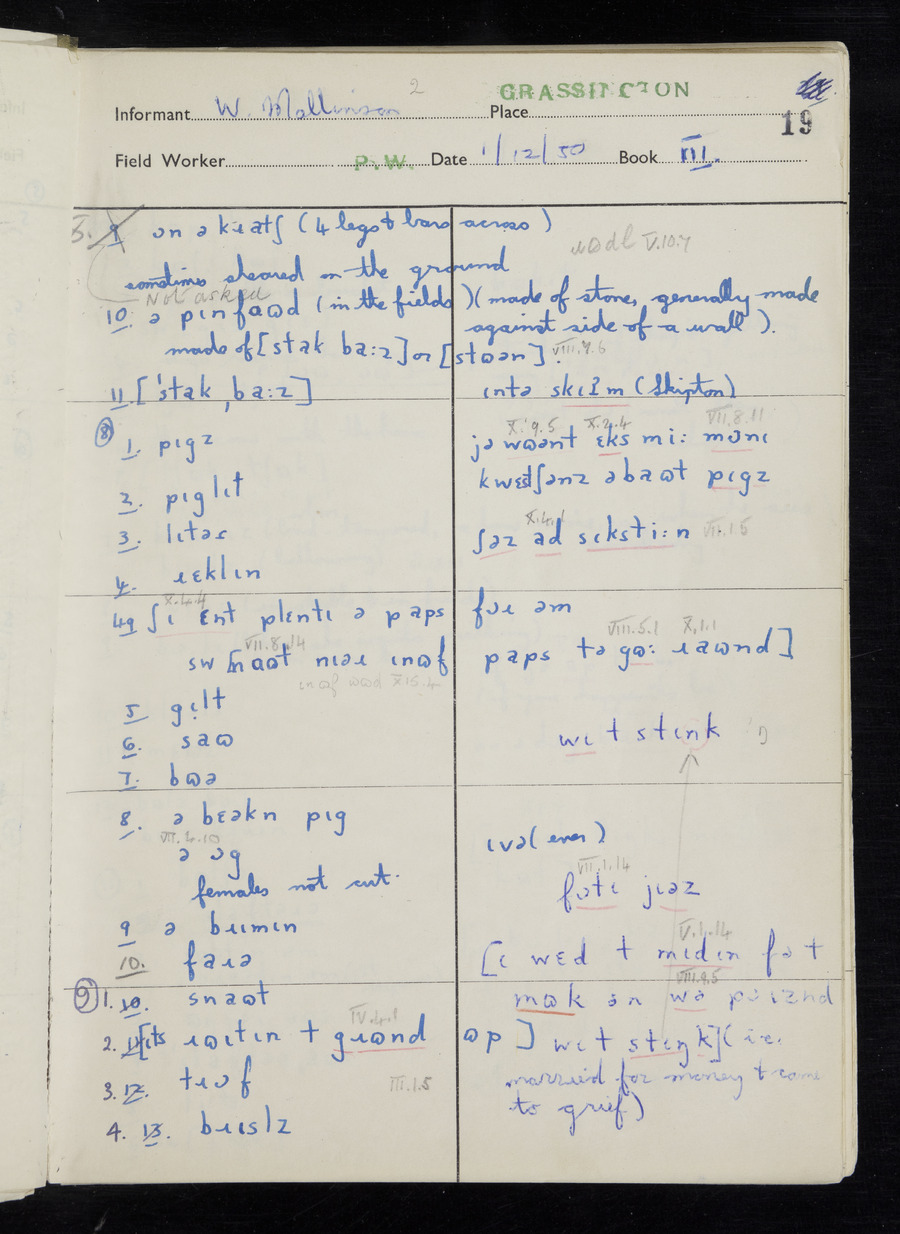 2
GRASSINGTON
Informant W. Mallinson Place
19
Field Worker P.W. Date 1/12/50 Book III.
5. 9 ɒn ə kɹatʃ (4 legs & bars across)
ɹɷdl V.10.7
sometimes sheared on the ground
Not asked
10. ə pɪnfaɷd (in the fields)
(made of stone, generally made
against side of a wall).
made of [stak ba:z] or [stɷən]. VIII.7.6
11. [ˈstak ˌba:z]
ɪntə skɪʔm (Skipton)
X.9.5 X.2.4 VII.8.11
⑧
1. pɪgz
jə wɷənt ɛks mi: mɒnɪ
2. pɪglɪt
kwɛstʃənz əbaɷt pɪgz
3. lɪtəɹ
X.4.1
ʃəz ad sɪksti:n VII.1.5
4. ɹɛklɪn
X.4.4
4a ʃɪ ɛnt plɛntɪ ə paps
fəɹ əm
VII.8.14
snaɷt nɪəɹ ɪnɷf
VIII.5.1 X.1.1
paps tə gɷ: ɹaɷnd]
5 gɪlt
6. saɷ
wɪt stɪnk ŋ
7. bɷə
8. ə bɹɛəkn pɪg
VII.4.10
ə ɒg
females not cut.
ɪvə (ever)
VII.1.14
fɒtɪ jɪəz
9 ə bɹɪmɪn
10. faɹə
V.1.14
[ɪ wɛd t mɪdɪn fət
VIII.9.5
⑨ 1. 10. snaɷt
mɷk ən wə pɒɪznd
IV.4.1
2. 11 [ɪts ɹɷɪtɪn t gɹɷnd
ɷp] wɪt stɪŋk] (i.e.
3. 12. tɹɒf III.1.5
married for money & came
to grief)
4. 13. bɹɪslz